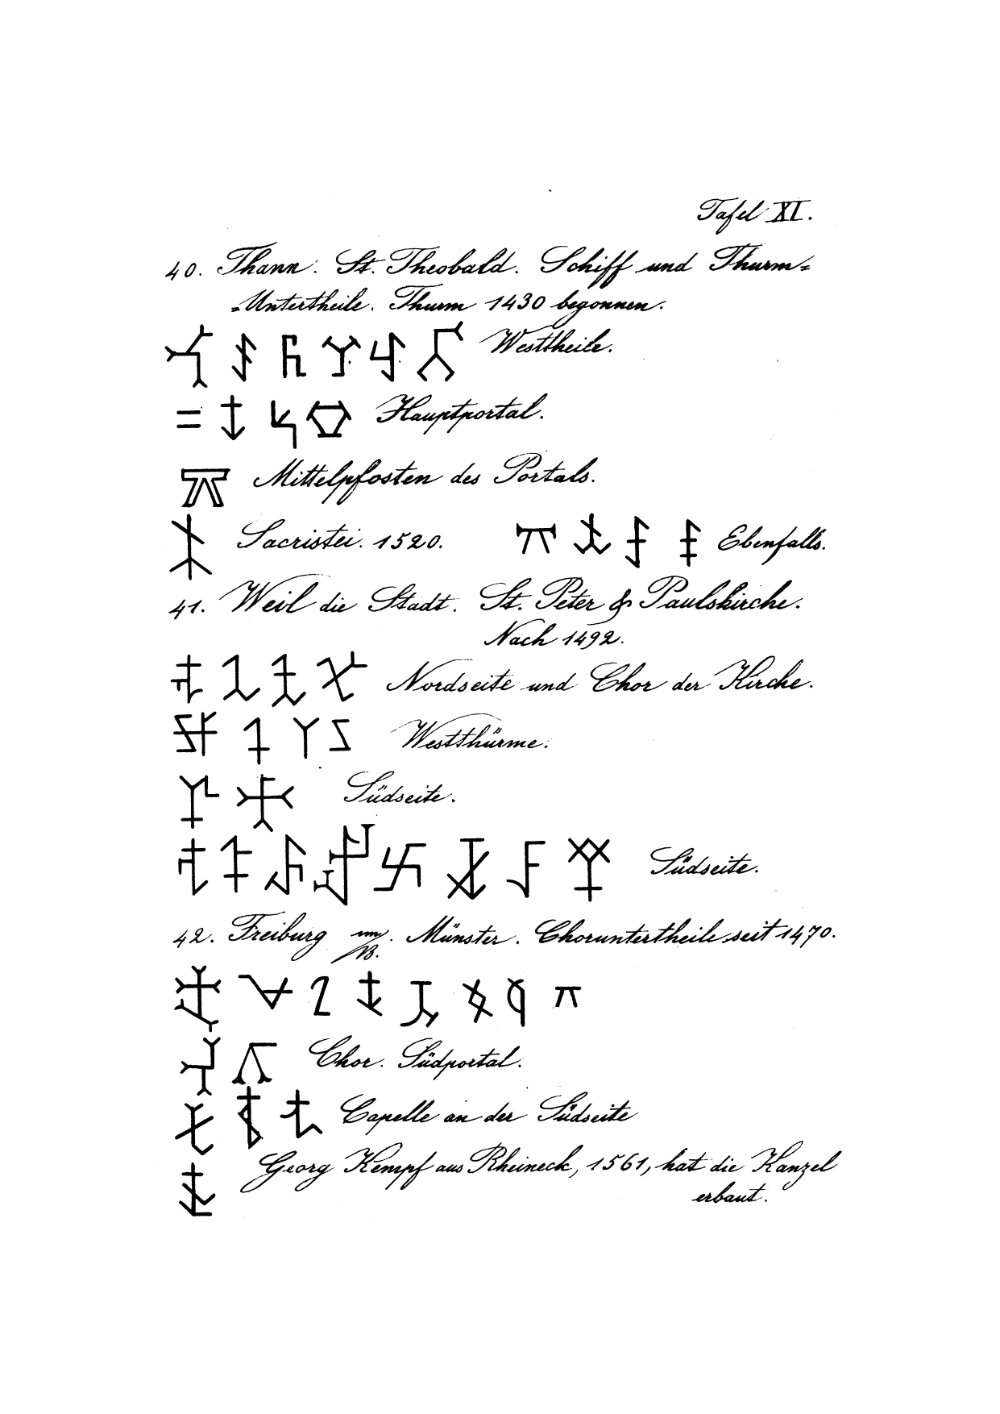 Tafel XI.
40. Thann. St. Theobald. Schiff und Thurm=
=Untertheile. Thurm 1430 begonnen.
Westtheile.
Hauptportal.
Mittelpfosten des Portals.
Sacristei. 1520. Ebenfalls.
41. Weil die Stadt. St. Peter & Paulskirche.
Nach 1492.
Nordseite und Chor der Kirche.
Westthürme.
Südseite.
Südseite.
42. Freiburg im/B. Münster. Choruntertheile seit 1470.
Chor. Südportal.
Capelle an der Südseite
Georg Kempf aus Rheineck, 1561, hat die Kanzel
erbaut.